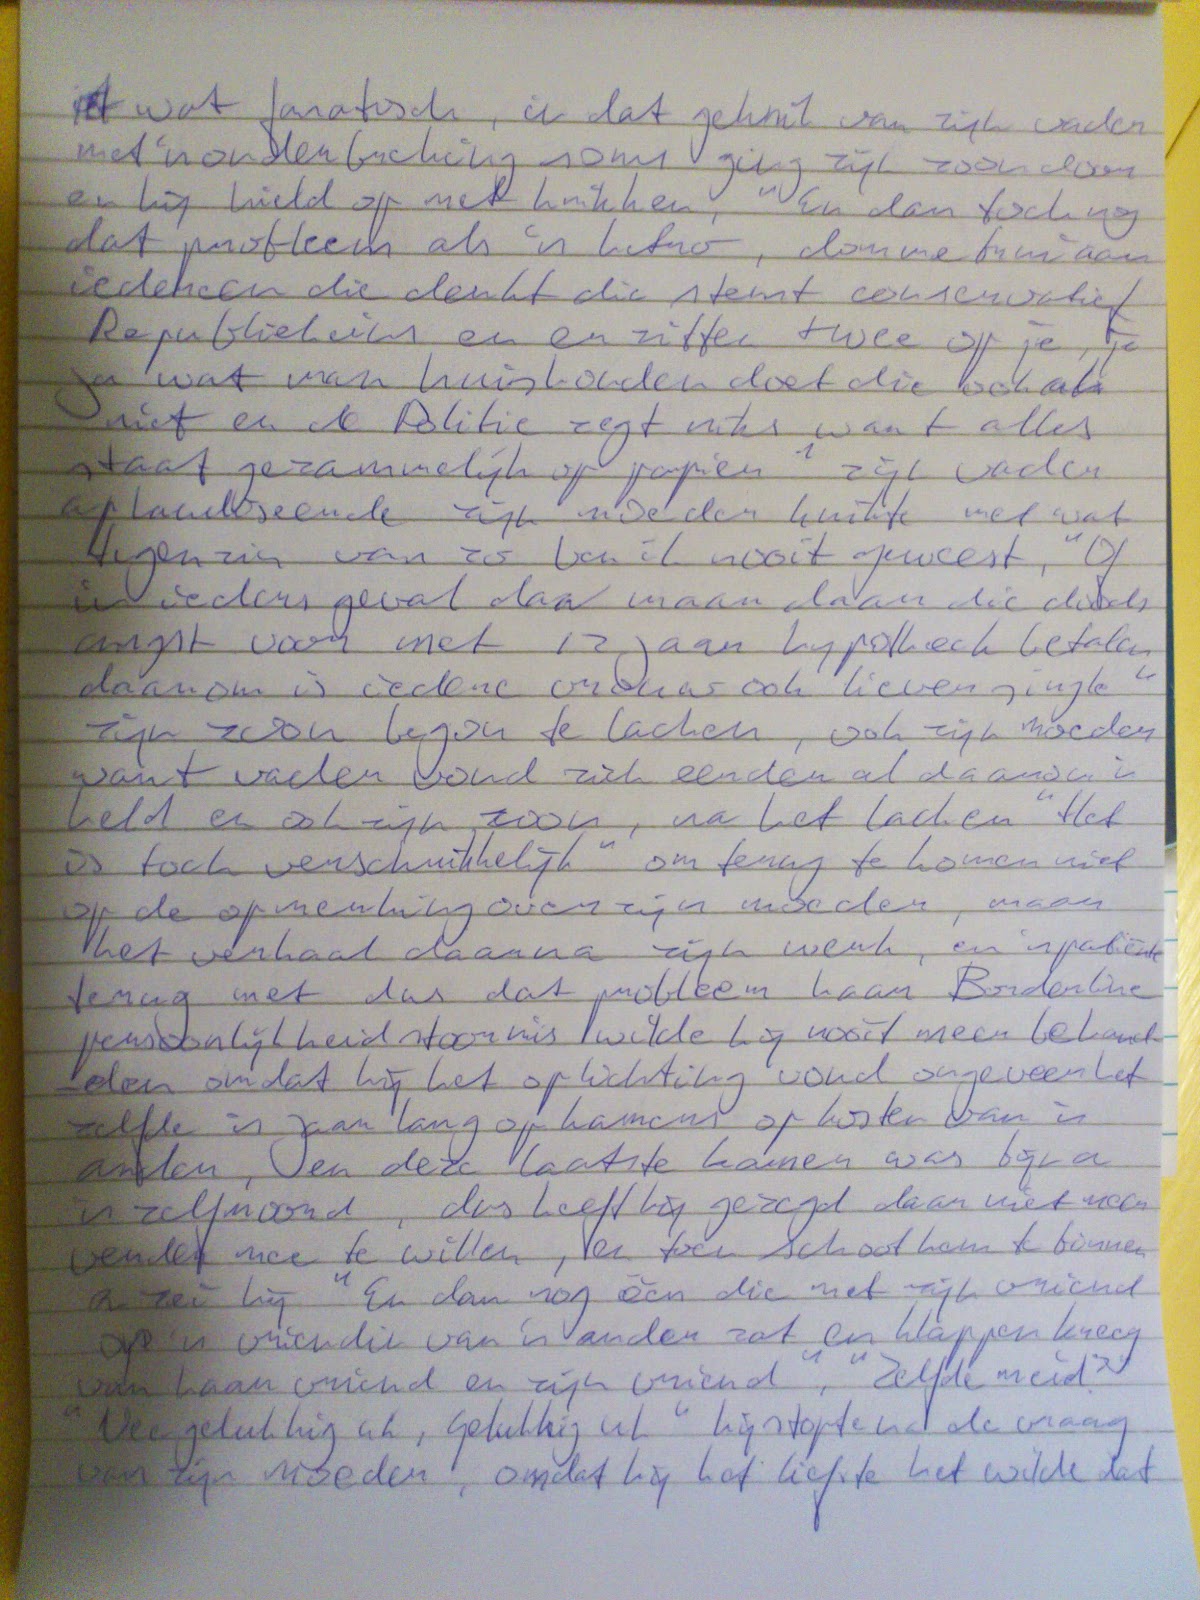 wat fanatisch, in dat geknik van zijn vader
met 'n onderbreking soms ging zijn zoon door
en hij hield op met knikken, "En dan toch nog
dat probleem als 'n hetro, domme
iedereen die denkt die stemt conservatief
Republikeins en en zitten twee op je, je
ja wat man huishouden doet die ook als
niet en de Politie zegt niks want alles
staat gezammelijk op papier" zijn vader
zijn moeder knikte met wat
tegenzin van zo ben ik nooit geweest, "Of
in ieders geval daar maar daan die doods
angst voor met 12 jaar hypotheek betalen
daarom is iedere ook liever single"
zijn zoon begon te lachen, ook zijn moeder
want vader vond zich eender al daarom 'n
held en ook zijn zoon, na het lachen "Het
is toch verschrikkelijk" om terug te komen niet
op de opmerking over zijn moeder, maar
het verhaal daarna zijn werk, en 'n patiënte
terug met dus dat probleem haar Borderline
persoonlijkheidstoornis wilde hij nooit meer behand
-elen omdat hij het oplichting vond ongeveer het
zelfde 'n jaar lang op kamers op kosten van 'n
ander, en deze laatste kamer was bijna
'n zelfmoord, dus heeft hij gezegd daar niet meer
verder mee te willen, en toen schoot hem te binnen
en zei hij "En dan nog één die met zijn vriend
op 'n vriendin van 'n ander zat en klappen kreeg
van haar vriend en zijn vriend", "Zelfde meid?"
"Nee gelukkig uh, gelukkig uh" hij stopte na de vraag
van zijn moeder, omdat hij het liefste het wilde dat